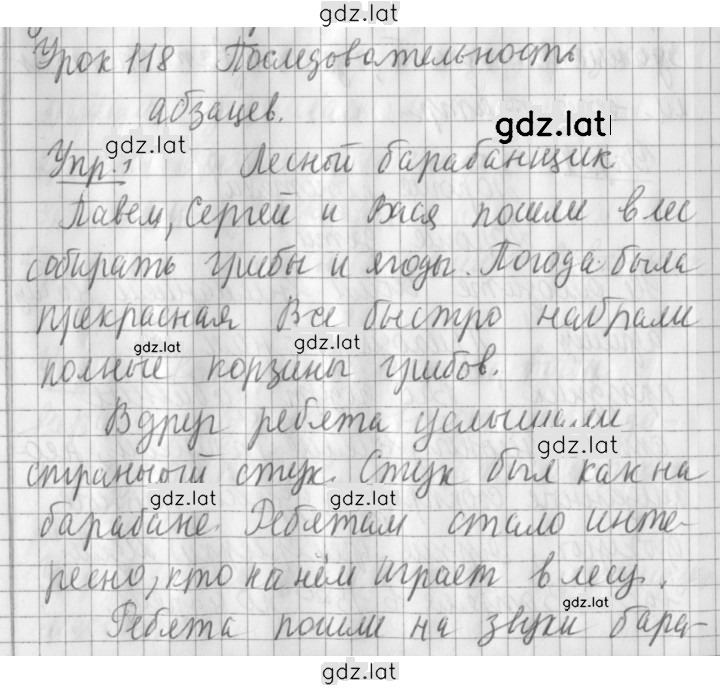 gdz.lat
Урок 118 Последовательность
абзацев.
gdz.lat
gdz.lat
Упр. 1 Лесной барабанщик
Павел, Сергей и Вася пошли в лес
собирать грибы и ягоды. Погода была
gdz.lat
прекрасная Все быстро набрали
gdz.lat gdz.lat
полные корзины грибов.
Вдруг ребята услышали
gdz.lat
странный стук. Стук был как на
gdz.lat gdz.lat
барабане. Ребятам стало инте-
ресно, кто на нём играет в лесу.
gdz.lat
Ребята пошли на звуки бара-
gdz.lat